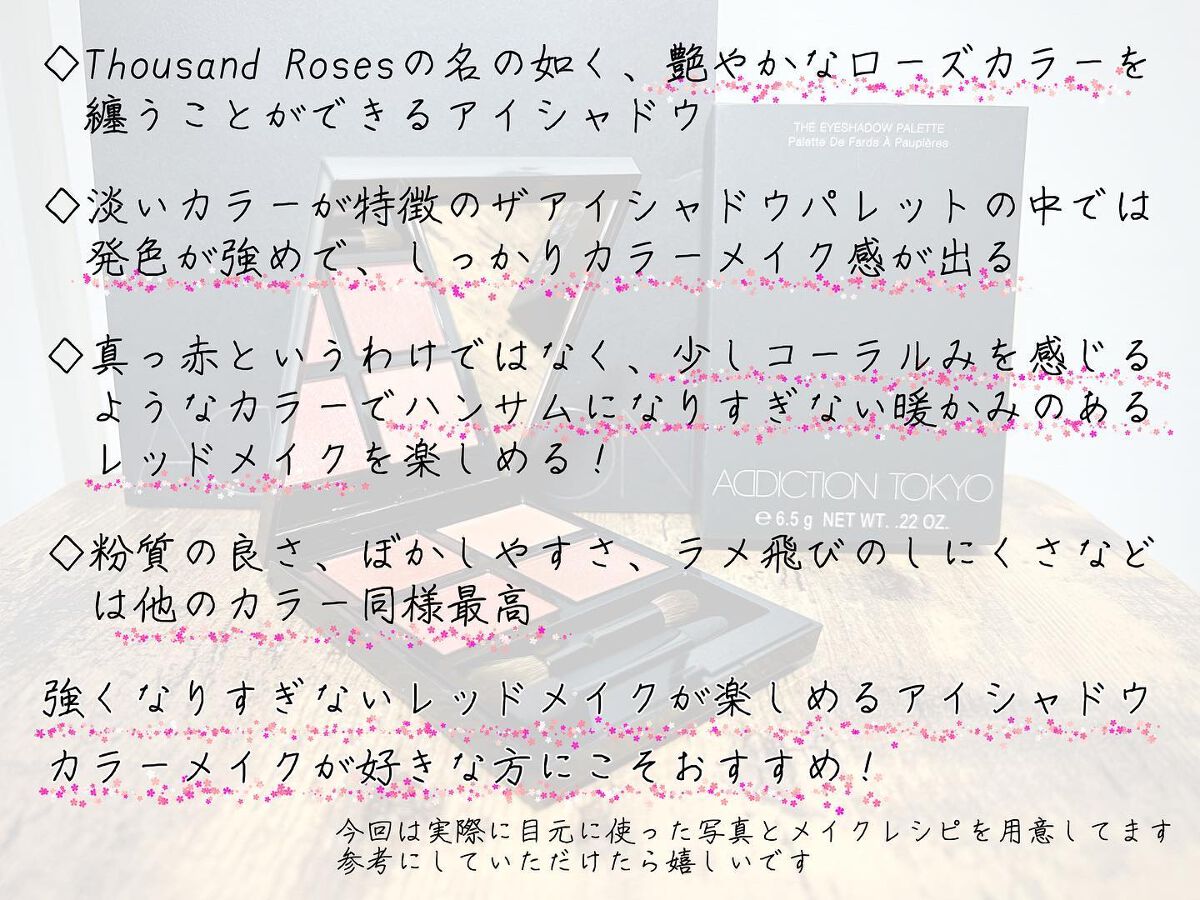 ◇Thousand Rosesの名の如く、艶やかなローズカラーを
纏うことができるアイシャドウ
◇淡いカラーが特徴のザアイシャドウパレットの中では
発色が強めで、しっかりカラーメイク感が出る
◇真っ赤というわけではなく、少しコーラルみを感じる
ようなカラーでハンサムになりすぎない暖かみのある
レッドメイクを楽しめる！
◇粉質の良さ、ぼかしやすさ、ラメ飛びのしにくさなど
は他のカラー同様最高
強くなりすぎないレッドメイクが楽しめるアイシャドウ
カラーメイクが好きな方にこそおすすめ！
今回は実際に目元に使った写真とメイクレシピを用意してます
参考にしていただけたら嬉しいです
THE EYESHADOW PALETTE
Palette De Fards À Paupières
ADDICTION TOKYO
℮ 6.5 g NET WT. .22 OZ.